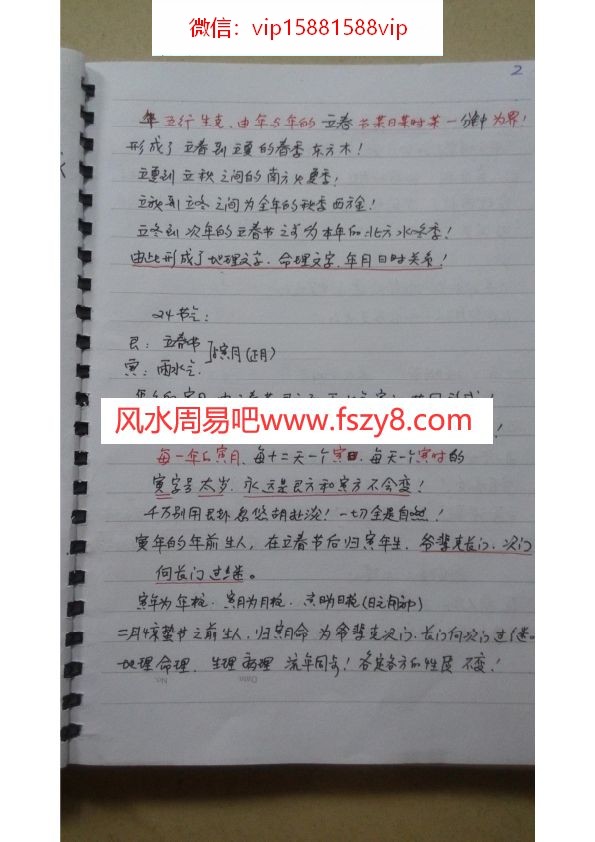 微信：vip15881588vip
2
年五行生克、由年与年的立春节某日某时某一分钟为界！
形成了立春到立夏的春季东方木！
立夏到立秋之间的南方火夏季！
立秋到立冬之间为全年的秋季西方金！
立冬到次年的立春节之前为本年的北方水冬季！
由此形成了地理文字、命理文字、年月日时关系！
24节气：
艮：立春节
寅：雨水气
寅月(正月)
风水周易吧www.fszy8.com
每一年的寅月、每十二天一个寅日、每天一个寅时的
寅字号太岁、永远是艮方和寅方不会变！
千万别用艮卦忽悠胡扯淡！一切全是自然！
寅年的年前生人，在立春节后归寅年生，爷辈克长门、次门
向长门过继。
寅年为年柱、寅月为月柱、寅日为日柱(日之前卯)
二月惊蛰节之前生人，归寅月命 为爷辈克次门、长门向次门过继。
地理命理、生理病理 流年同步！各定各方的性质不变！
No.
Date